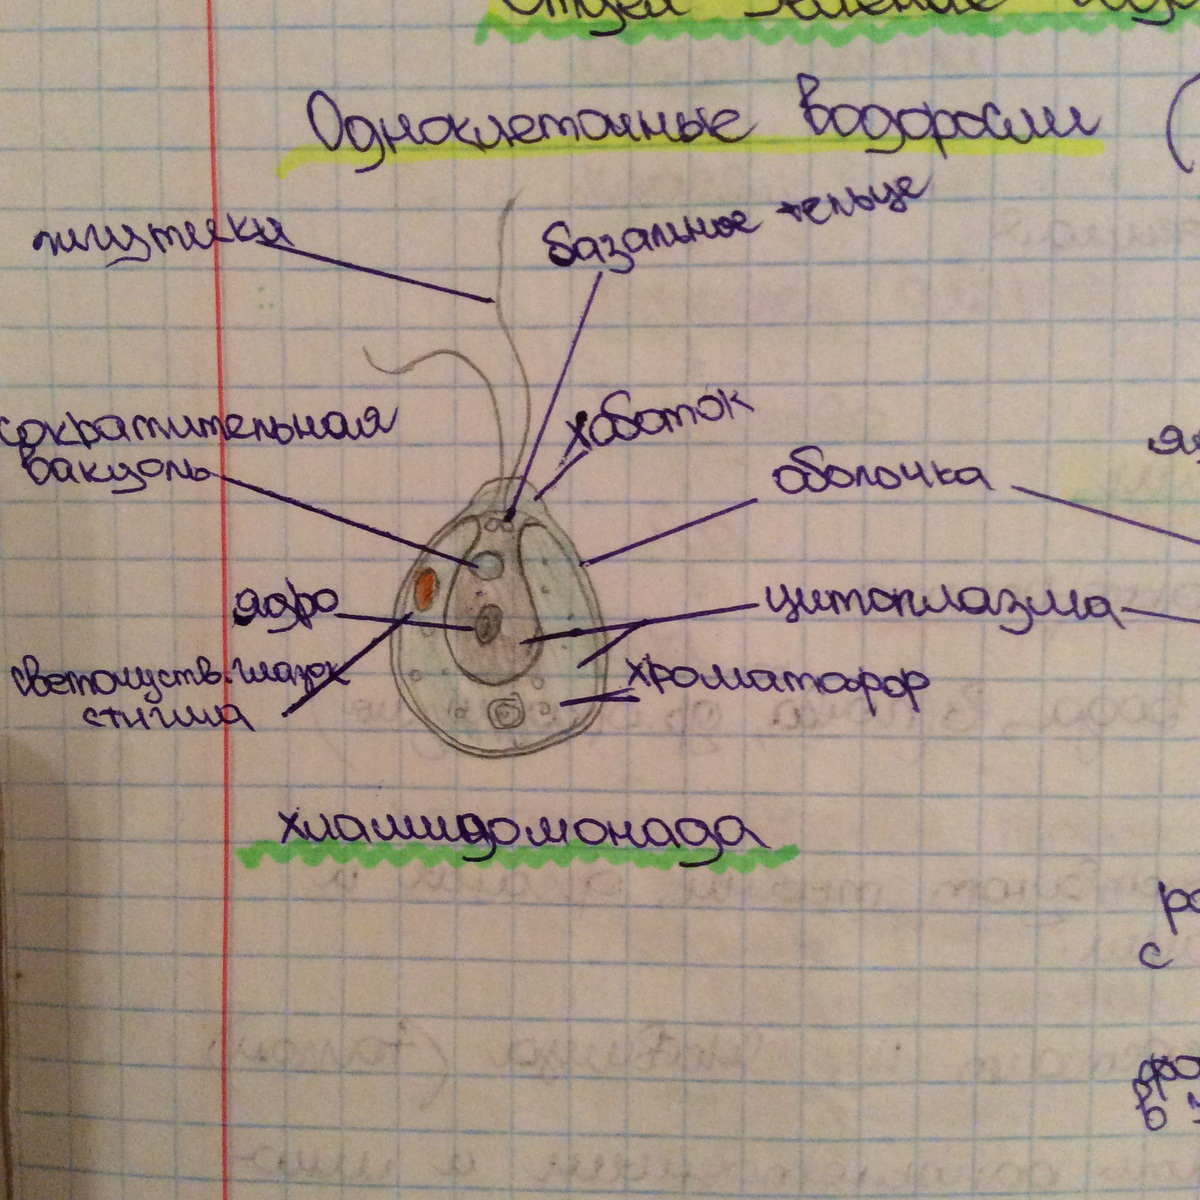 Отдел Зелёные
Одноклеточные водоросли (
жгутики
базальное тельце
хоботок
сократительная
вакуоль
оболочка
яд
ядро
цитоплазма
светочувств. глазок
стигма
хроматофор
хламидомонада
ро
с
фо
в